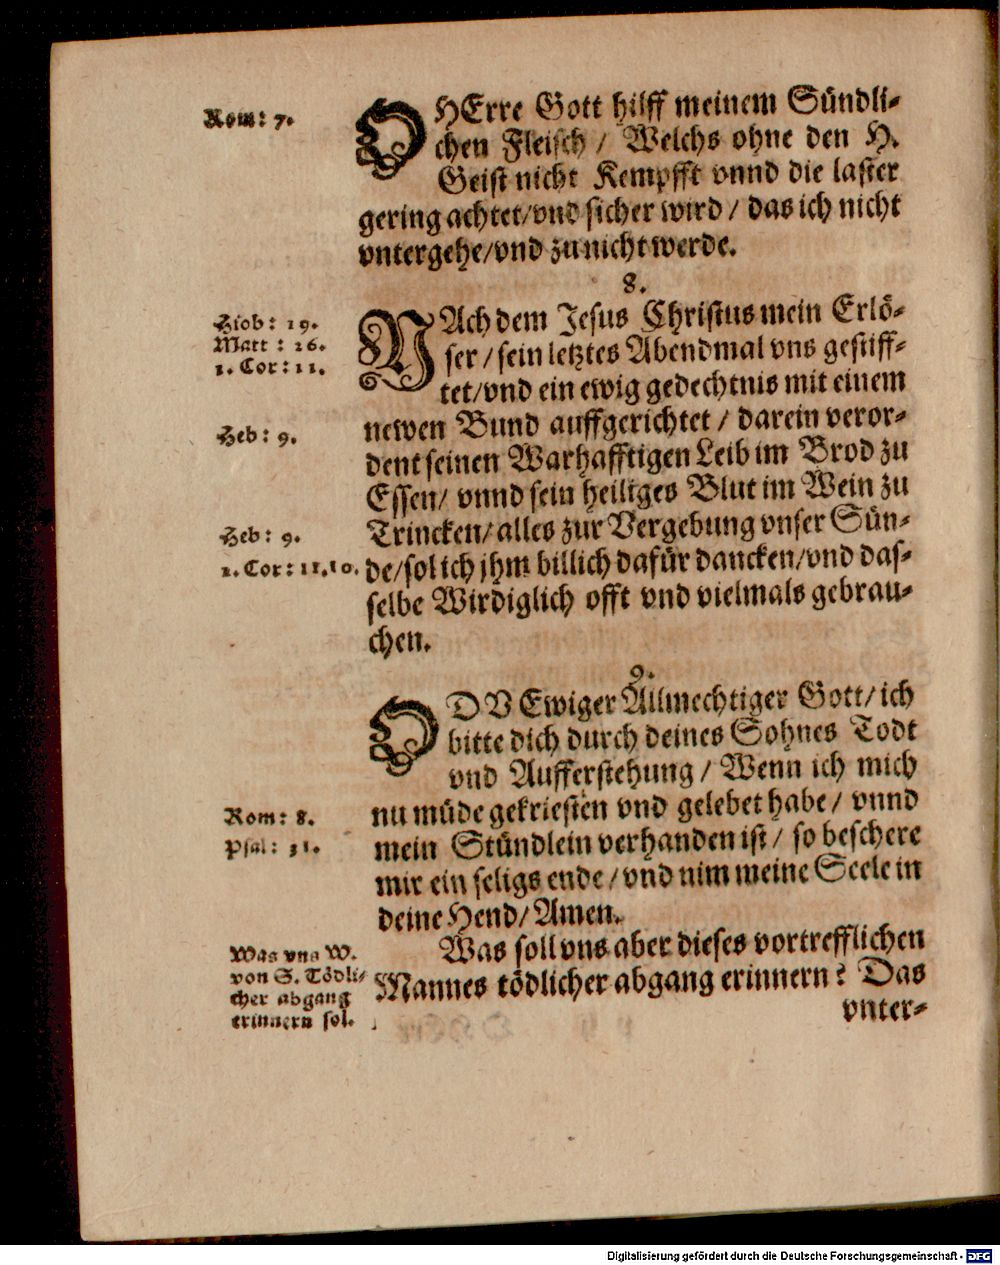 Rom: 7.
O HErre Gott hilff meinem Sündli-
chen Fleisch / Welchs ohne den H.
Geist nicht Kempfft vnnd die laster
gering achtet/vnd sicher wird / das ich nicht
vntergehe/vnd zu nicht werde.
8.
Hiob: 19.
Matt: 26.
1. Cor: 11.
NAch dem Jesus Christus mein Erlö-
ser / sein letztes Abendmal vns gestiff-
tet/vnd ein ewig gedechtnis mit einem
newen Bund auffgerichtet / darein veror-
Heb: 9.
dent seinen Warhafftigen Leib im Brod zu
Essen/ vnnd sein heiliges Blut im Wein zu
Trincken/ alles zur Vergebung vnser Sün-
Heb: 9.
1. Cor: 11.10.
de/sol ich jhm billich dafür dancken/vnd das-
selbe Wirdiglich offt vnd vielmals gebrau-
chen.
9.
O DV Ewiger Allmechtiger Gott/ ich
bitte dich durch deines Sohnes Todt
vnd Aufferstehung / Wenn ich mich
nu müde gekriesten vnd gelebet habe / vnnd
Rom: 8.
Psal: 31.
mein Stündlein verhanden ist / so beschere
mir ein seligs ende / vnd nim meine Seele in
deine Hend/ Amen.
Was vns W.
von S. Tödli-
cher abgang
erinnern sol.
Was soll vns aber dieses vortrefflichen
Mannes tödlicher abgang erinnern? Das
vnter-
Digitalisierung gefördert durch die Deutsche Forschungsgemeinschaft - DFG